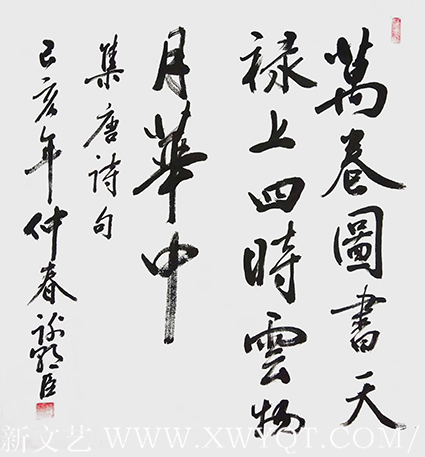 萬卷圖書天
禄上四時雲物
月華中
集唐诗句
己亥年仲春
新文艺 WWW.XWYQT.COM/